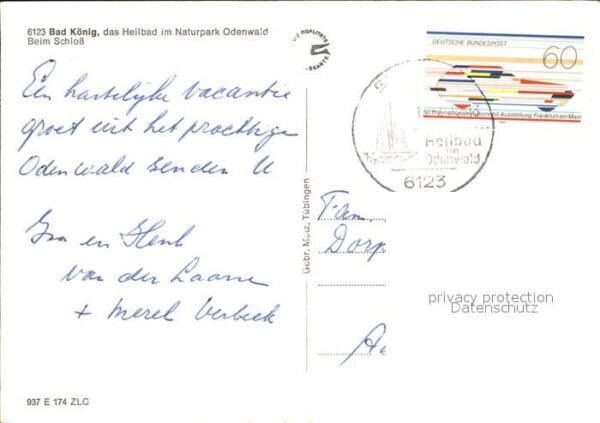 6123 Bad König, das Heilbad im Naturpark Odenwald
Beim Schloß
Een hartelijke vacantie
groet uit het prachtige
Odenwald zenden U
en Henk
van der Laame
+ Merel Verbeek
937 E 174 ZLC
Gebr. Metz, Tübingen
QUALITÄTS
KARTE
DEUTSCHE BUNDESPOST
60
50 Internationale Automobil-Ausstellung Frankfurt am Main
Heilbad
im
Odenwald
6123
Fam.
Dorp
privacy protection
Datenschutz